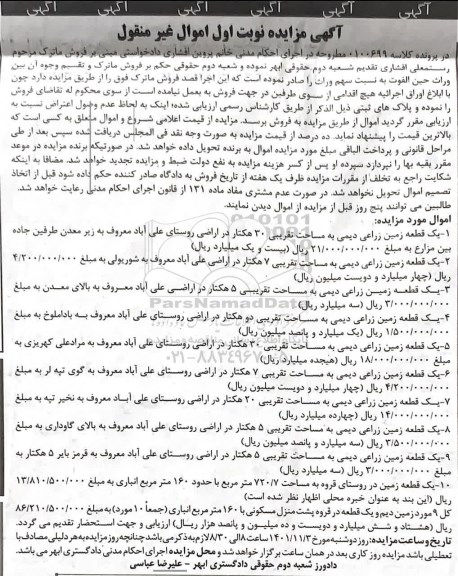 آگهی مزایده نوبت اول اموال غیر منقول
در پرونده کلاسه ۰۱۰۰۶۹۹ مطروحه در اجرای احکام مدنی خانم پروین افشاری دادخواستی مبنی بر فروش ماترک مرحوم
رستمعلی افشاری تقدیم شعبه دوم حقوقی ابهر نموده و شعبه دوم حقوقی حکم بر فروش ماترک و تقسیم وجوه آن بین
وراث حین الفوت به نسبت سهم وراث را صادر نموده است که این اجرا قصد فروش ماترک فوق را از طریق مزایده دارد چون
با ابلاغ اوراق اجرائیه هیچ اقدامی از سوی طرفین در جهت فروش به عمل نیامده است از سوی محکوم له تقاضای فروش
را نموده و پلاک های ثبتی ذیل الذکر از طریق کارشناس رسمی ارزیابی شده؛ اینک به لحاظ عدم وصول اعتراض نسبت به
ارزیابی مقرر گردید اموال از طریق مزایده به فروش برسد. مزایده از قیمت اعلامی شروع و اموال متعلق به کسی است که
بالاترین قیمت را پیشنهاد نماید. ده درصد از قیمت مزایده به صورت وجه نقد فی المجلس دریافت شده سپس بعد از طی
مراحل قانونی و پرداخت الباقی مبلغ مورد مزایده اموال به برنده تحویل داده خواهد شد. در صورتیکه برنده مزایده در موعد
مقرر بقیه بها را نپردازد سپرده او پس از کسر هزینه مزایده به نفع دولت ضبط و مزایده تجدید خواهد شد. مضافا به اینکه
شکایت راجع به تخلف از مقررات مزایده ظرف یک هفته از تاریخ فروش به دادگاه صادر کننده حکم داده شود قبل از اتخاذ
تصمیم اموال تحویل نخواهد شد. در صورت عدم مشتری مفاد ماده ۱۳۱ از قانون اجرای احکام مدنی رعایت خواهد شد.
طالبین می توانند پنج روز قبل از مزایده از اموال دیدن نمایند.
اموال مورد مزایده:
۱-یک قطعه زمین زراعی دیمی به مساحت تقریبی ۳۰ هکتار در اراضی روستای علی آباد معروف به زیر معدن طرفین جاده
بین مزارع به مبلغ ۲۱/۰۰۰/۰۰۰/۰۰۰ ریال (بیست و یک میلیارد ریال)
۲-یک قطعه زمین زراعی دیمی به مساحت تقریبی ۷ هکتار در اراضی علی آباد معروف به شوریولی به مبلغ ۴/۲۰۰/۰۰۰/۰۰۰
ریال (چهار میلیارد و دویست میلیون ریال)
۳-یک قطعه زمین زراعی دیمی به مساحت تقریبی ۵ هکتار در اراضی علی آباد معروف به بالای معدن به مبلغ
۳/۰۰۰/۰۰۰/۰۰۰ ریال (سه میلیارد ریال)
۴-یک قطعه زمین زراعی دیمی به مساحت تقریبی دو هکتار در اراضی روستای علی آباد معروف به باداملوخ به مبلغ
۱/۵۰۰/۰۰۰/۰۰۰ ریال (یک میلیارد و پانصد میلیون ریال)
۵-یک قطعه زمین زراعی دیمی به مساحت تقریبی ۳۰ هکتار در اراضی روستای علی آباد معروف به مرادعلی کهریزی به
مبلغ ۱۸/۰۰۰/۰۰۰/۰۰۰ ریال (هیجده میلیارد ریال)
۶-یک قطعه زمین زراعی دیمی به مساحت تقریبی ۷ هکتار در اراضی روستای علی آباد معروف به گوی تپه لر به مبلغ
۴/۲۰۰/۰۰۰/۰۰۰ ریال (چهار میلیارد و دویست میلیون ریال)
۷-یک قطعه زمین زراعی دیمی به مساحت تقریبی ۲۰ هکتار در اراضی روستای علی آباد معروف به نخیر تپه به مبلغ
۱۴/۰۰۰/۰۰۰/۰۰۰ ریال (چهارده میلیارد ریال)
۸-یک قطعه زمین زراعی دیمی به مساحت تقریبی ۵ هکتار در اراضی روستای علی آباد معروف به بالای گاوداری به مبلغ
۳/۵۰۰/۰۰۰/۰۰۰ ریال (سه میلیارد و پانصد میلیون ریال)
۹-یک قطعه زمین زراعی دیمی به مساحت تقریبی ۵ هکتار در اراضی روستای علی آباد معروف به قرمز بایر ۵ هکتار به
مبلغ ۳/۰۰۰/۰۰۰/۰۰۰ ریال (سه میلیارد ریال)
۱۰-یک قطعه زمین در روستای قروه به مساحت ۷۲۰/۷ متر مربع با حدود ۱۶۰ متر مربع انباری به مبلغ ۱۳/۸۱۰/۵۰۰/۰۰۰
ریال (این بند به عنوان خبره محلی اظهار نظر شده است)
کل ۹ مورد زمین دیم و یک قطعه در قروه پشت منزل مسکونی با ۱۶۰ متر مربع انباری (جمعاً ۱۰ مورد) به مبلغ ۸۶/۲۱۰/۵۰۰/۰۰۰
ریال (هشتاد و شش میلیارد و دویست و ده میلیون و پانصد هزار ریال) ارزیابی و جهت استحضار تقدیم می گردد.
تاریخ و ساعت مزایده: روز دوشنبه مورخ ۱۴۰۱/۱۱/۳ از ساعت ۸ الی ۸/۳۰ لازم به ذکر می باشد چنانچه روز مزایده به هر دلیلی مصادف با
تعطیلی باشد مزایده روز کاری بعد در همان ساعت برگزار خواهد شد و محل مزایده اجرای احکام مدنی دادگستری ابهر می باشد.
دادورز شعبه دوم حقوقی دادگستری ابهر - علیرضا عباسی
ParsNamadData
۰۲۱-۸۸۳۴۹۶۷۰